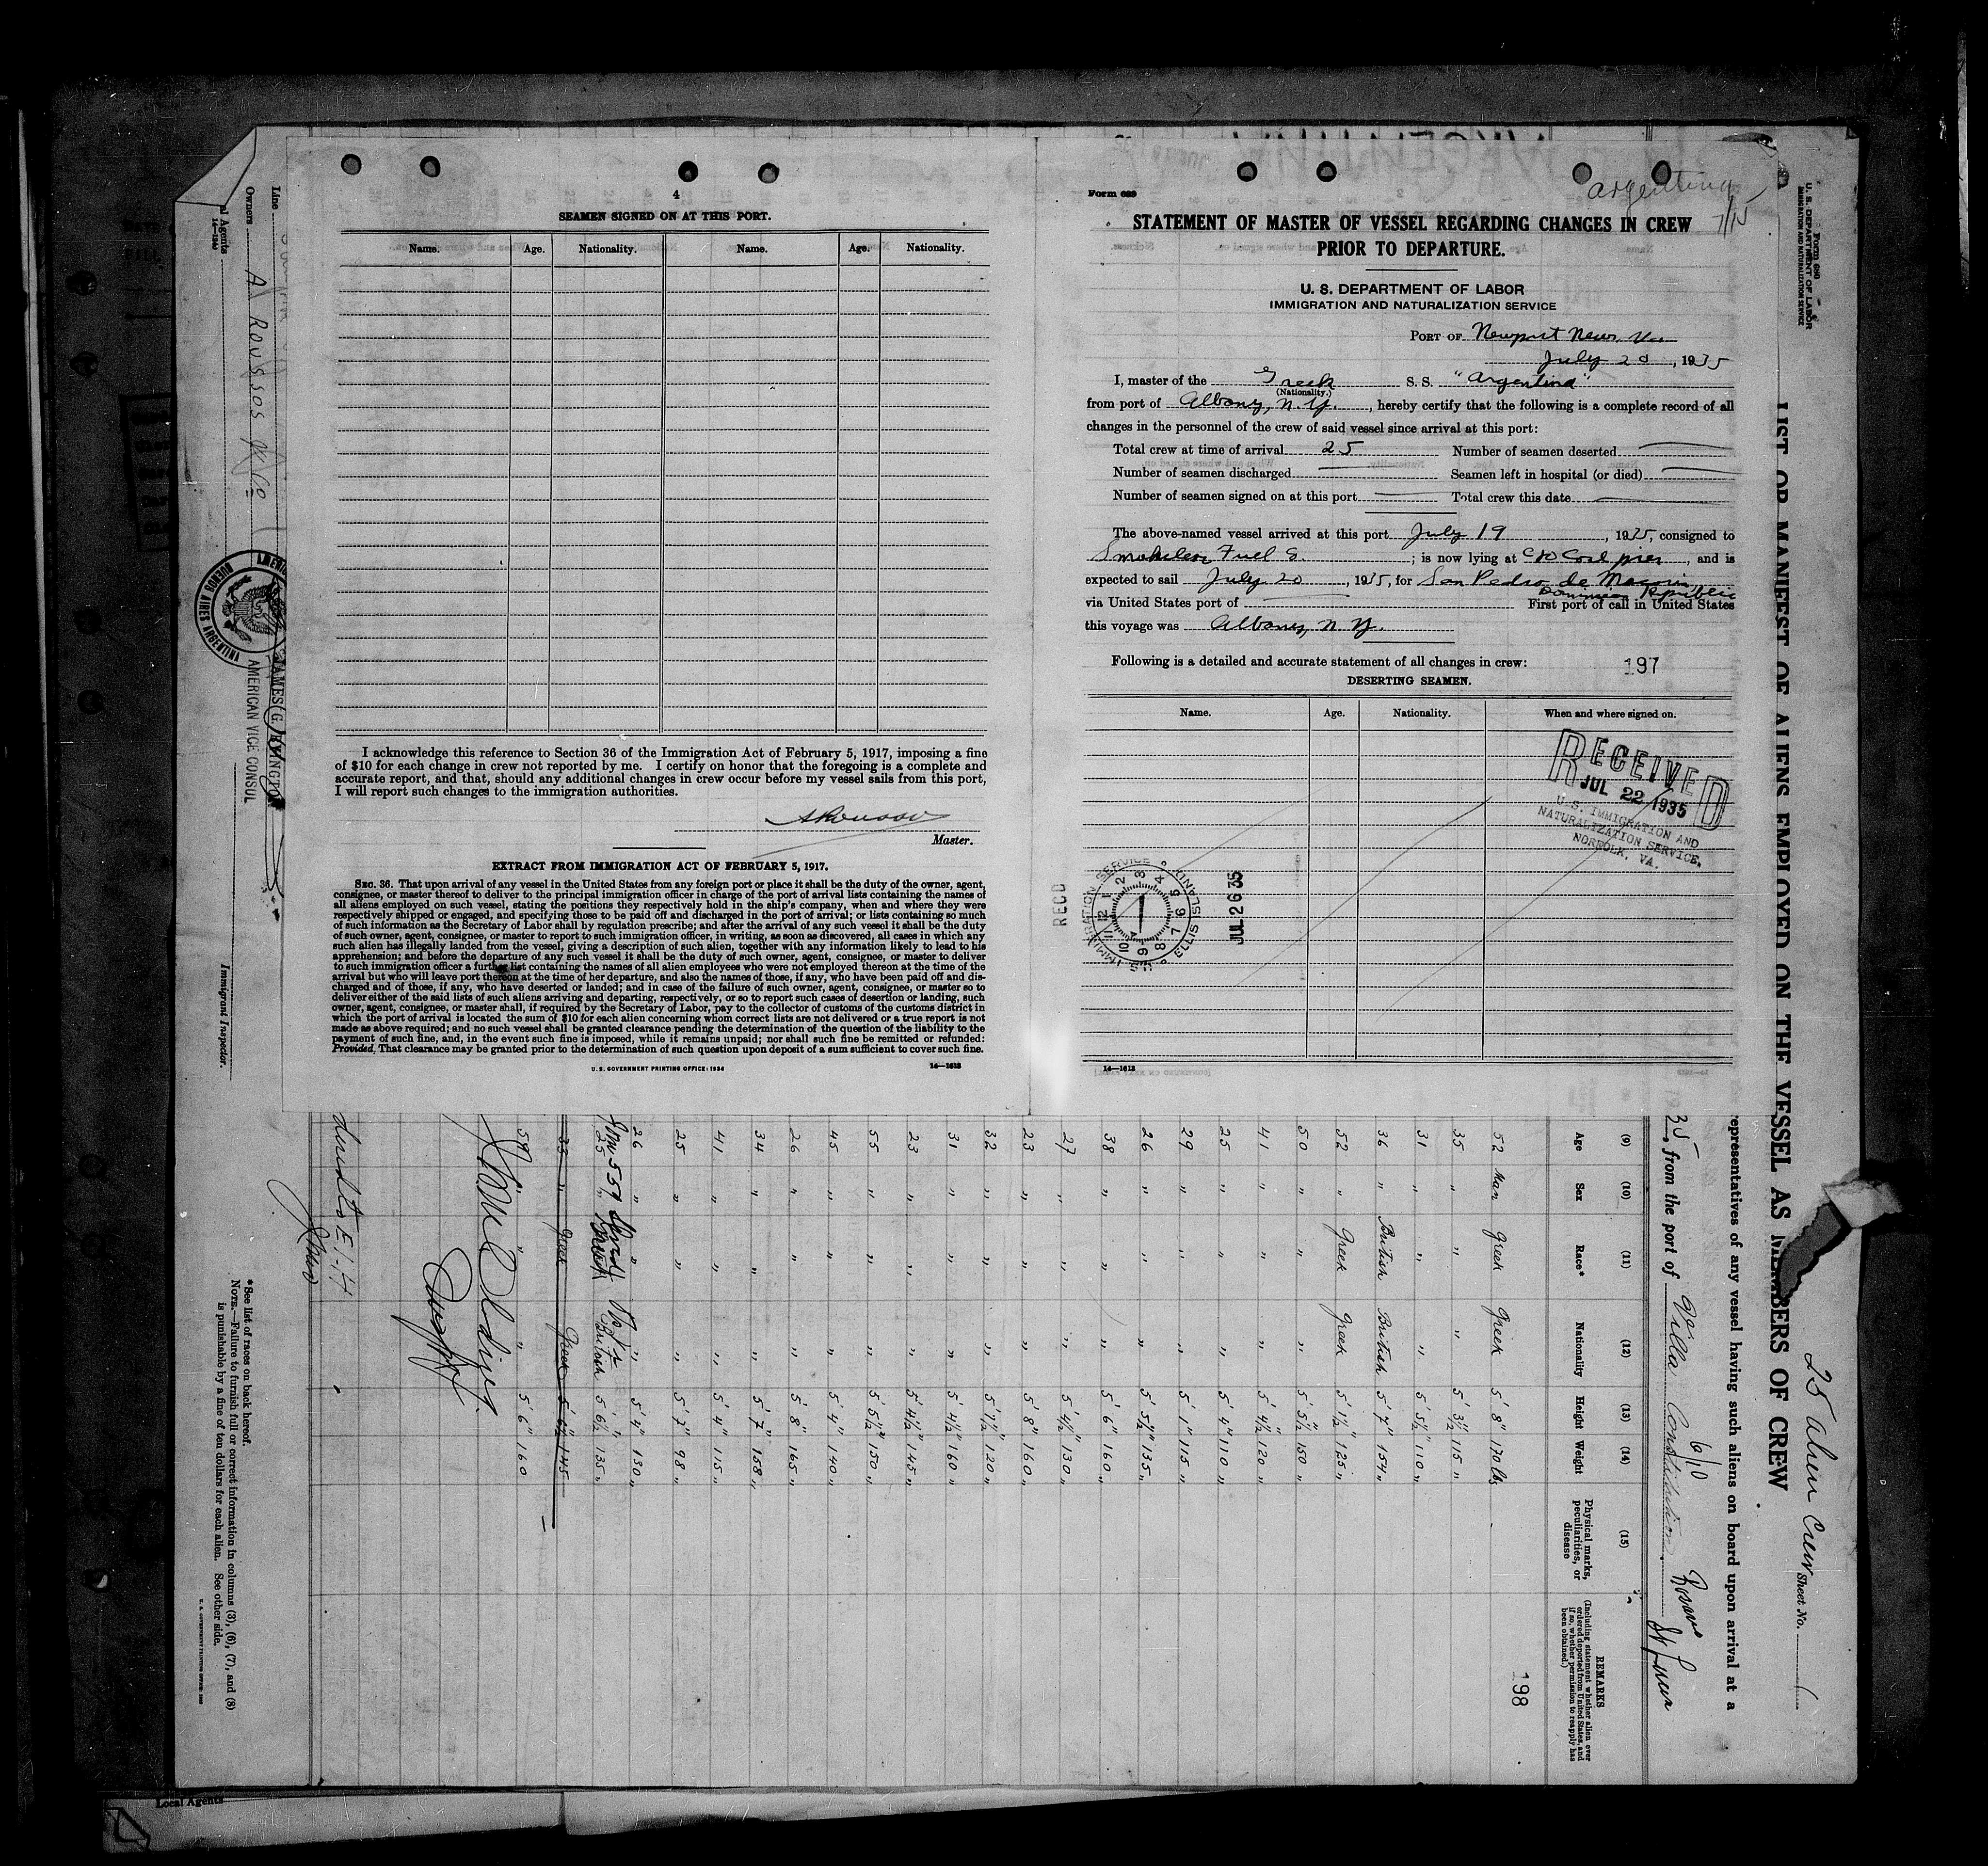 4
SEAMEN SIGNED ON AT THIS PORT.
Name. Age. Nationality. Name. Age. Nationality.
I acknowledge this reference to Section 36 of the Immigration Act of February 5, 1917, imposing a fine
of $10 for each change in crew not reported by me. I certify on honor that the foregoing is a complete and
accurate report, and that, should any additional changes in crew occur before my vessel sails from this port,
I will report such changes to the immigration authorities.
Master.
EXTRACT FROM IMMIGRATION ACT OF FEBRUARY 5, 1917.
SEC. 36. That upon arrival of any vessel in the United States from any foreign port or place it shall be the duty of the owner, agent,
consignee, or master thereof to deliver to the principal immigration officer in charge of the port of arrival lists containing the names of
all aliens employed on such vessel, stating the positions they respectively hold in the ship's company, when and where they were
respectively shipped or engaged, and specifying those to be paid off and discharged in the port of arrival; or lists containing so much
of such information as the Secretary of Labor shall by regulation prescribe; and after the arrival of any such vessel it shall be the duty
of such owner, agent, consignee, or master to report to such immigration officer, in writing, as soon as discovered, all cases in which any
such alien has illegally landed from the vessel, giving a description of such alien, together with any information likely to lead to his
apprehension; and before the departure of any such vessel it shall be the duty of such owner, agent, consignee, or master to deliver
to such immigration officer a further list containing the names of all alien employees who were not employed thereon at the time of the
arrival but who will leave port thereon at the time of her departure, and also the names of those, if any, who have been paid off and dis-
charged and of those, if any, who have deserted or landed; and in case of the failure of such owner, agent, consignee, or master so to
deliver either of the said lists of such aliens arriving and departing, respectively, or so to report such cases of desertion or landing, such
owner, agent, consignee, or master shall, if required by the Secretary of Labor, pay to the collector of customs of the customs district in
which the port of arrival is located the sum of $10 for each alien concerning whom correct lists are not delivered or a true report is not
made as above required; and no such vessel shall be granted clearance pending the determination of the question of the liability to the
payment of such fine, and, in the event such fine is imposed, while it remains unpaid; nor shall such fine be remitted or refunded:
Provided, That clearance may be granted prior to the determination of such question upon deposit of a sum sufficient to cover such fine.
U. S. GOVERNMENT PRINTING OFFICE: 1934 14—1613
Form 689
Argentina
7/15
STATEMENT OF MASTER OF VESSEL REGARDING CHANGES IN CREW
PRIOR TO DEPARTURE.
U. S. DEPARTMENT OF LABOR
IMMIGRATION AND NATURALIZATION SERVICE
PORT OF Newport News, Va.
July 20, 1935
I, master of the Greek S. S. "Argentina"
(Nationality.)
from port of Albany, N. Y., hereby certify that the following is a complete record of all
changes in the personnel of the crew of said vessel since arrival at this port:
Total crew at time of arrival 25 Number of seamen deserted
Number of seamen discharged Seamen left in hospital (or died)
Number of seamen signed on at this port Total crew this date
The above-named vessel arrived at this port July 19, 1935, consigned to
Smokeless Fuel Co.; is now lying at C&O Coal pier, and is
expected to sail July 20, 1935, for San Pedro de Macoris,
Dominican Republic
via United States port of First port of call in United States
this voyage was Albany, N. Y.
Following is a detailed and accurate statement of all changes in crew: 197
DESERTING SEAMEN.
Name. Age. Nationality. When and where signed on.
RECEIVED
JUL 22 1935
U.S. IMMIGRATION AND
NATURALIZATION SERVICE,
NORFOLK, VA.
RECD
U.S. IMMIGRATION SERVICE ELLIS ISLAND
JUL 26 35
14—1613
Form 680
U. S. DEPARTMENT OF LABOR
IMMIGRATION AND NATURALIZATION SERVICE
25 alien crew Sheet No.
LIST OR MANIFEST OF ALIENS EMPLOYED ON THE VESSEL AS MEMBERS OF CREW
representatives of any vessel having such aliens on board upon arrival at a
35, from the port of Villa Constitucion 6/10
(9) (10) (11) (12) (13) (14) (15)
Age Sex Race* Nationality Height Weight Physical marks, peculiarities, or disease
REMARKS
(Including statement whether alien ever
ordered deported from United States, and
if so, whether permission to reapply has
been obtained.)
198
52 Man Greek Greek 5' 8" 170 lbs
35 " " " 5' 3½ 115 "
31 " " " 5' 5½ 110 "
36 " British British 5' 7" 154 "
52 " Greek Greek 5' 1½ 125 "
50 " " " 5' 5½" 150 "
41 " " " 5' 4½ 120 "
25 " " " 5' 4" 110 "
29 " " " 5' 1" 115 "
26 " " " 5' 5½" 135 "
38 " " " 5' 6" 160 "
27 " " " 5' 4½" 130 "
23 " " " 5' 8" 160 "
32 " " " 5' 1½" 120 "
31 " " " 5' 4½" 160 "
23 " " " 5' 4½" 145 "
55 " " " 5' 5½" 150 "
45 " " " 5' 4" 140 "
26 " " " 5' 8" 165 "
34 " " " 5' 7" 158 "
41 " " " 5' 4" 115 "
25 " " " 5' 7" 98 "
26 " " " 5' 4" 130 "
25 " British 5' 6½ 135 "
33 " Greek Greek 5' 6½" 145
59 " " " 5' 6" 160
Line
Owners A. Roussos & Co
al Agents
14—1240
AMERICAN
BUENOS AIRES ARGENTINA
JAMES G. BYINGTON
AMERICAN VICE CONSUL
Immigrant Inspector.
*See list of races on back hereof.
NOTE.—Failure to furnish full or correct information in columns (3), (6), (7), and (8)
is punishable by a fine of ten dollars for each alien. See other side.
Local Agents